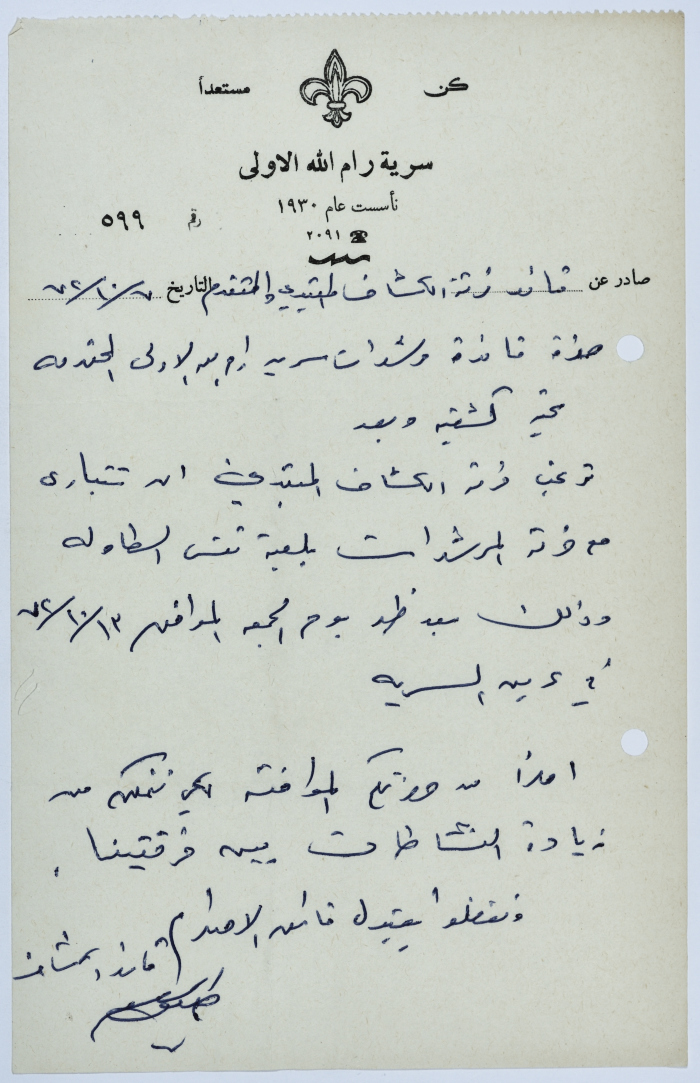 كن مستعداً
سرية رام الله الاولى
تأسست عام ١٩٣٠
رقم ٥٩٩
☎ ٢٠٩١
صادر عن قائد فرقة الكشاف المبتدئ والمتقدم التاريخ ٧/١٠/٧٢
حضرة قائدة مرشدات سرية رام الله الاولى المحترمه
تحية كشفيه وبعد
ترغب فرقة الكشاف المبتدئ ان تتبارى
مع فرقة المرشدات بلعبة تنس الطاوله
وذلك بعد ظهر يوم الجمعه الموافق ١٣/١٠/٧٢
في عرين السريه
املاً من حضرتكم الموافقه لكي نتمكن من
زيادة النشاطات بين فرقتينا .
وتفضلوا بقبول فائق الاحترام
قائد الكشاف